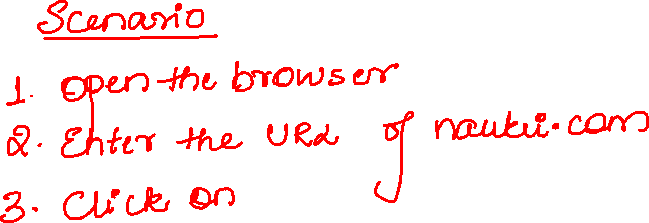 Scenario
1. open the browser
2. Enter the URL of naukri.com
3. Click on